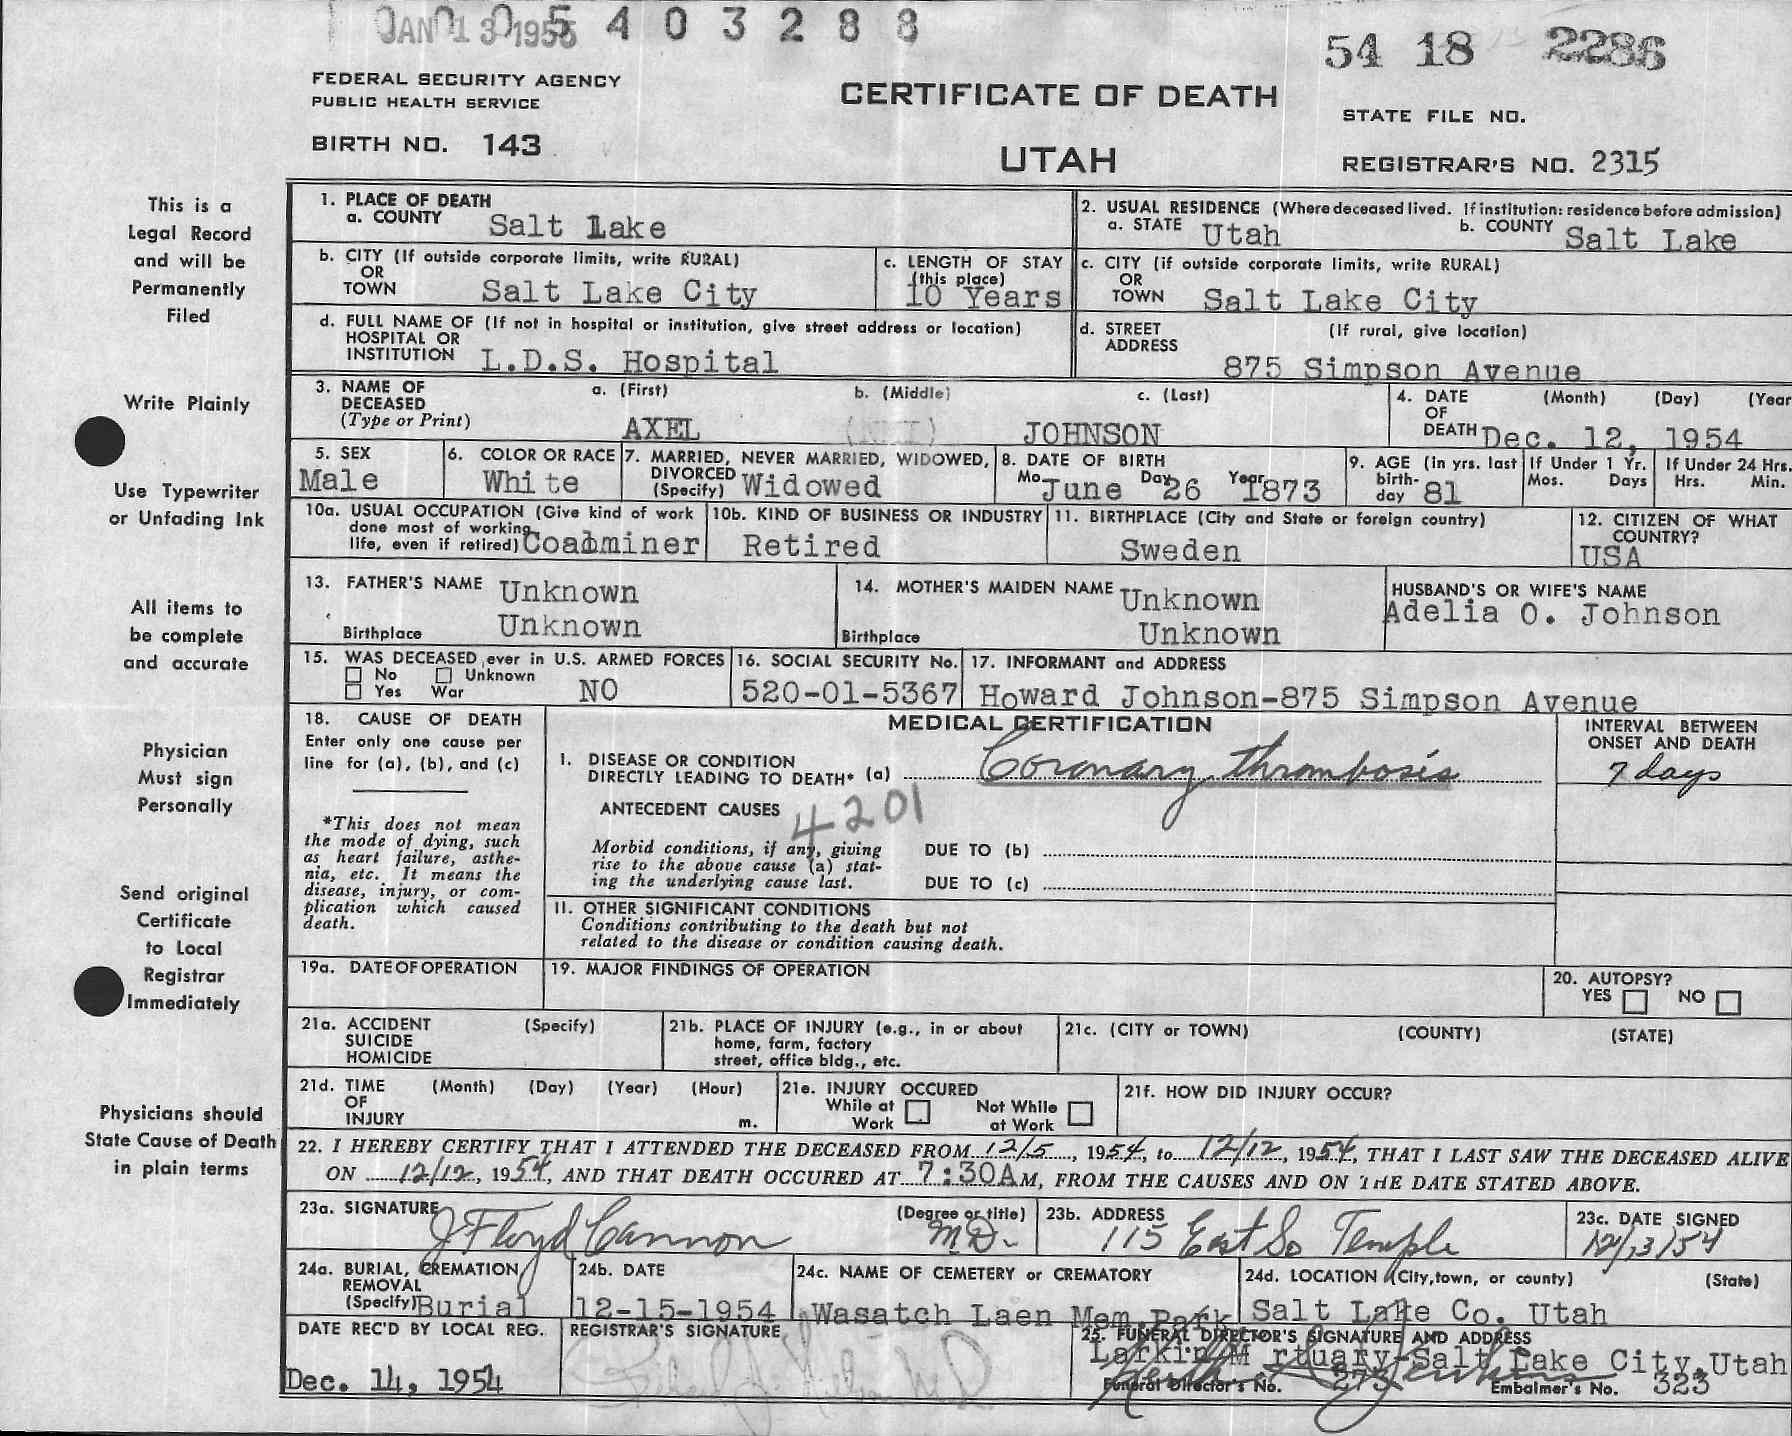 JAN 13 1955
5 4 0 3 2 8 8
54 18 2286
FEDERAL SECURITY AGENCY
PUBLIC HEALTH SERVICE
BIRTH NO. 143
CERTIFICATE OF DEATH
UTAH
STATE FILE NO.
REGISTRAR'S NO. 2315
This is a
Legal Record
and will be
Permanently
Filed
Write Plainly
Use Typewriter
or Unfading Ink
All items to
be complete
and accurate
Physician
Must sign
Personally
Send original
Certificate
to Local
Registrar
Immediately
Physicians should
State Cause of Death
in plain terms
1. PLACE OF DEATH
a. COUNTY Salt Lake
2. USUAL RESIDENCE (Where deceased lived. If institution: residence before admission)
a. STATE Utah b. COUNTY Salt Lake
b. CITY (If outside corporate limits, write RURAL)
OR
TOWN Salt Lake City
c. LENGTH OF STAY
(this place)
10 Years
c. CITY (if outside corporate limits, write RURAL)
OR
TOWN Salt Lake City
d. FULL NAME OF (If not in hospital or institution, give street address or location)
HOSPITAL OR
INSTITUTION L.D.S. Hospital
d. STREET (If rural, give location)
ADDRESS
875 Simpson Avenue
3. NAME OF
DECEASED
(Type or Print)
a. (First) b. (Middle) c. (Last)
AXEL (NMI) JOHNSON
4. DATE (Month) (Day) (Year
OF
DEATH Dec. 12, 1954
5. SEX
Male
6. COLOR OR RACE
White
7. MARRIED, NEVER MARRIED, WIDOWED,
DIVORCED
(Specify) Widowed
8. DATE OF BIRTH
Mo. June Day 26 Year 1873
9. AGE (In yrs. last
birth-
day 81
If Under 1 Yr.
Mos. Days
If Under 24 Hrs.
Hrs. Min.
10a. USUAL OCCUPATION (Give kind of work
done most of working
life, even if retired) Coalminer
10b. KIND OF BUSINESS OR INDUSTRY
Retired
11. BIRTHPLACE (City and State or foreign country)
Sweden
12. CITIZEN OF WHAT
COUNTRY?
USA
13. FATHER'S NAME Unknown
Birthplace Unknown
14. MOTHER'S MAIDEN NAME Unknown
Birthplace Unknown
HUSBAND'S OR WIFE'S NAME
Adelia O. Johnson
15. WAS DECEASED ever in U.S. ARMED FORCES
No Unknown
Yes War NO
16. SOCIAL SECURITY No.
520-01-5367
17. INFORMANT and ADDRESS
Howard Johnson-875 Simpson Avenue
18. CAUSE OF DEATH
Enter only one cause per
line for (a), (b), and (c)
*This does not mean
the mode of dying, such
as heart failure, asthe-
nia, etc. It means the
disease, injury, or com-
plication which caused
death.
MEDICAL CERTIFICATION
I. DISEASE OR CONDITION
DIRECTLY LEADING TO DEATH* (a) Coronary thrombosis
ANTECEDENT CAUSES
4201
Morbid conditions, if any, giving
rise to the above cause (a) stat-
ing the underlying cause last.
DUE TO (b)
DUE TO (c)
II. OTHER SIGNIFICANT CONDITIONS
Conditions contributing to the death but not
related to the disease or condition causing death.
INTERVAL BETWEEN
ONSET AND DEATH
7 days
19a. DATE OF OPERATION
19. MAJOR FINDINGS OF OPERATION
20. AUTOPSY?
YES NO
21a. ACCIDENT (Specify)
SUICIDE
HOMICIDE
21b. PLACE OF INJURY (e.g., in or about
home, farm, factory
street, office bldg., etc.
21c. (CITY or TOWN) (COUNTY) (STATE)
21d. TIME (Month) (Day) (Year) (Hour)
OF
INJURY m.
21e. INJURY OCCURED
While at Not While
Work at Work
21f. HOW DID INJURY OCCUR?
22. I HEREBY CERTIFY THAT I ATTENDED THE DECEASED FROM 12/5, 1954, to 12/12, 1954, THAT I LAST SAW THE DECEASED ALIVE
ON 12/12, 1954, AND THAT DEATH OCCURED AT 7:30A M, FROM THE CAUSES AND ON THE DATE STATED ABOVE.
23a. SIGNATURE (Degree or title)
J Floyd Cannon M.D.
23b. ADDRESS
115 East So Temple
23c. DATE SIGNED
12/13/54
24a. BURIAL, CREMATION
REMOVAL
(Specify) Burial
24b. DATE
12-15-1954
24c. NAME OF CEMETERY or CREMATORY
Wasatch Laen Mem.Park
24d. LOCATION (City, town, or county) (State)
Salt Lake Co. Utah
DATE REC'D BY LOCAL REG.
Dec. 14, 1954
REGISTRAR'S SIGNATURE
25. FUNERAL DIRECTOR'S SIGNATURE AND ADDRESS
Larkin M rtuary-Salt Lake City,Utah
Funeral Director's No. 273 Embalmer's No. 323